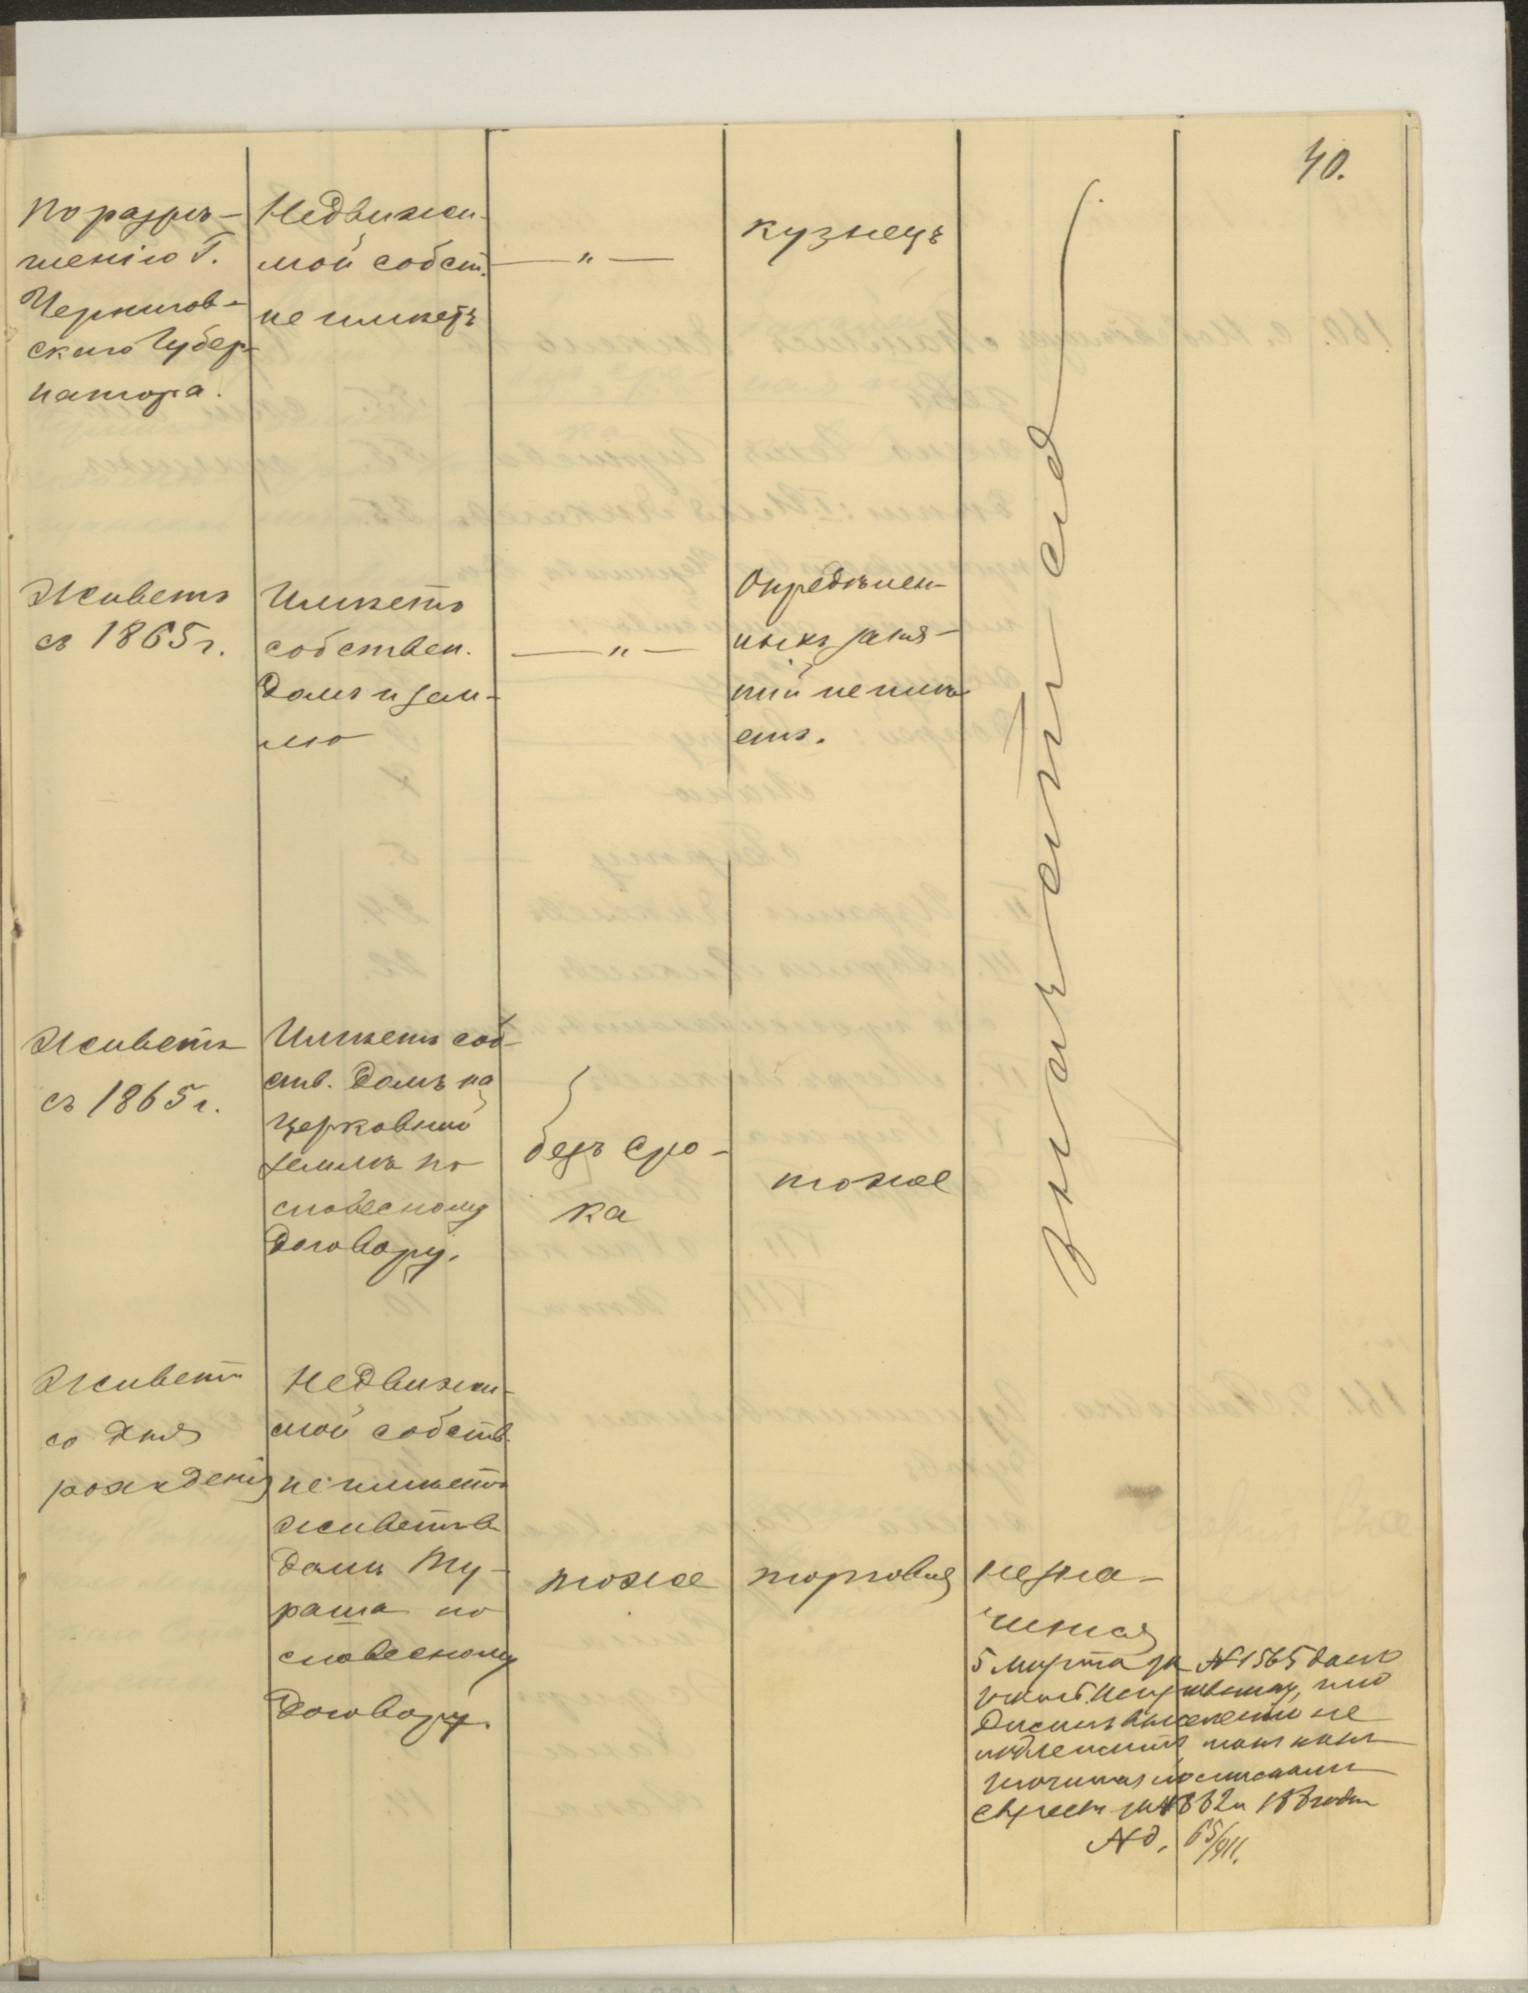 40.
По разрѣ-
шенію Г.
Чернигов-
скаго Губер-
натора.
Недвижи-
мой собст.
не имѣетъ
— " —
кузнецъ
Живетъ
съ 1865 г.
Имѣетъ
собствен.
домъ и зем-
лю
— " —
Опредѣлен-
ныхъ заня-
тій не имѣ-
етъ.
Живетъ
съ 1865 г.
Имѣетъ соб-
ств. домъ на
церковной
землѣ по
словесному
договору.
безъ сро-
ка
тоже
Живетъ
со дня
рожденія
Недвижи-
мой собств.
не имѣетъ
живетъ в
домѣ Му-
раша по
словесному
договору.
тоже
торговля
незна-
чится
5 марта за № 1565 дано
что
выселенію не
подлежитъ такъ какъ
спискамъ
евреевъ за 1882 и 188 годы
№ д. 65/911.